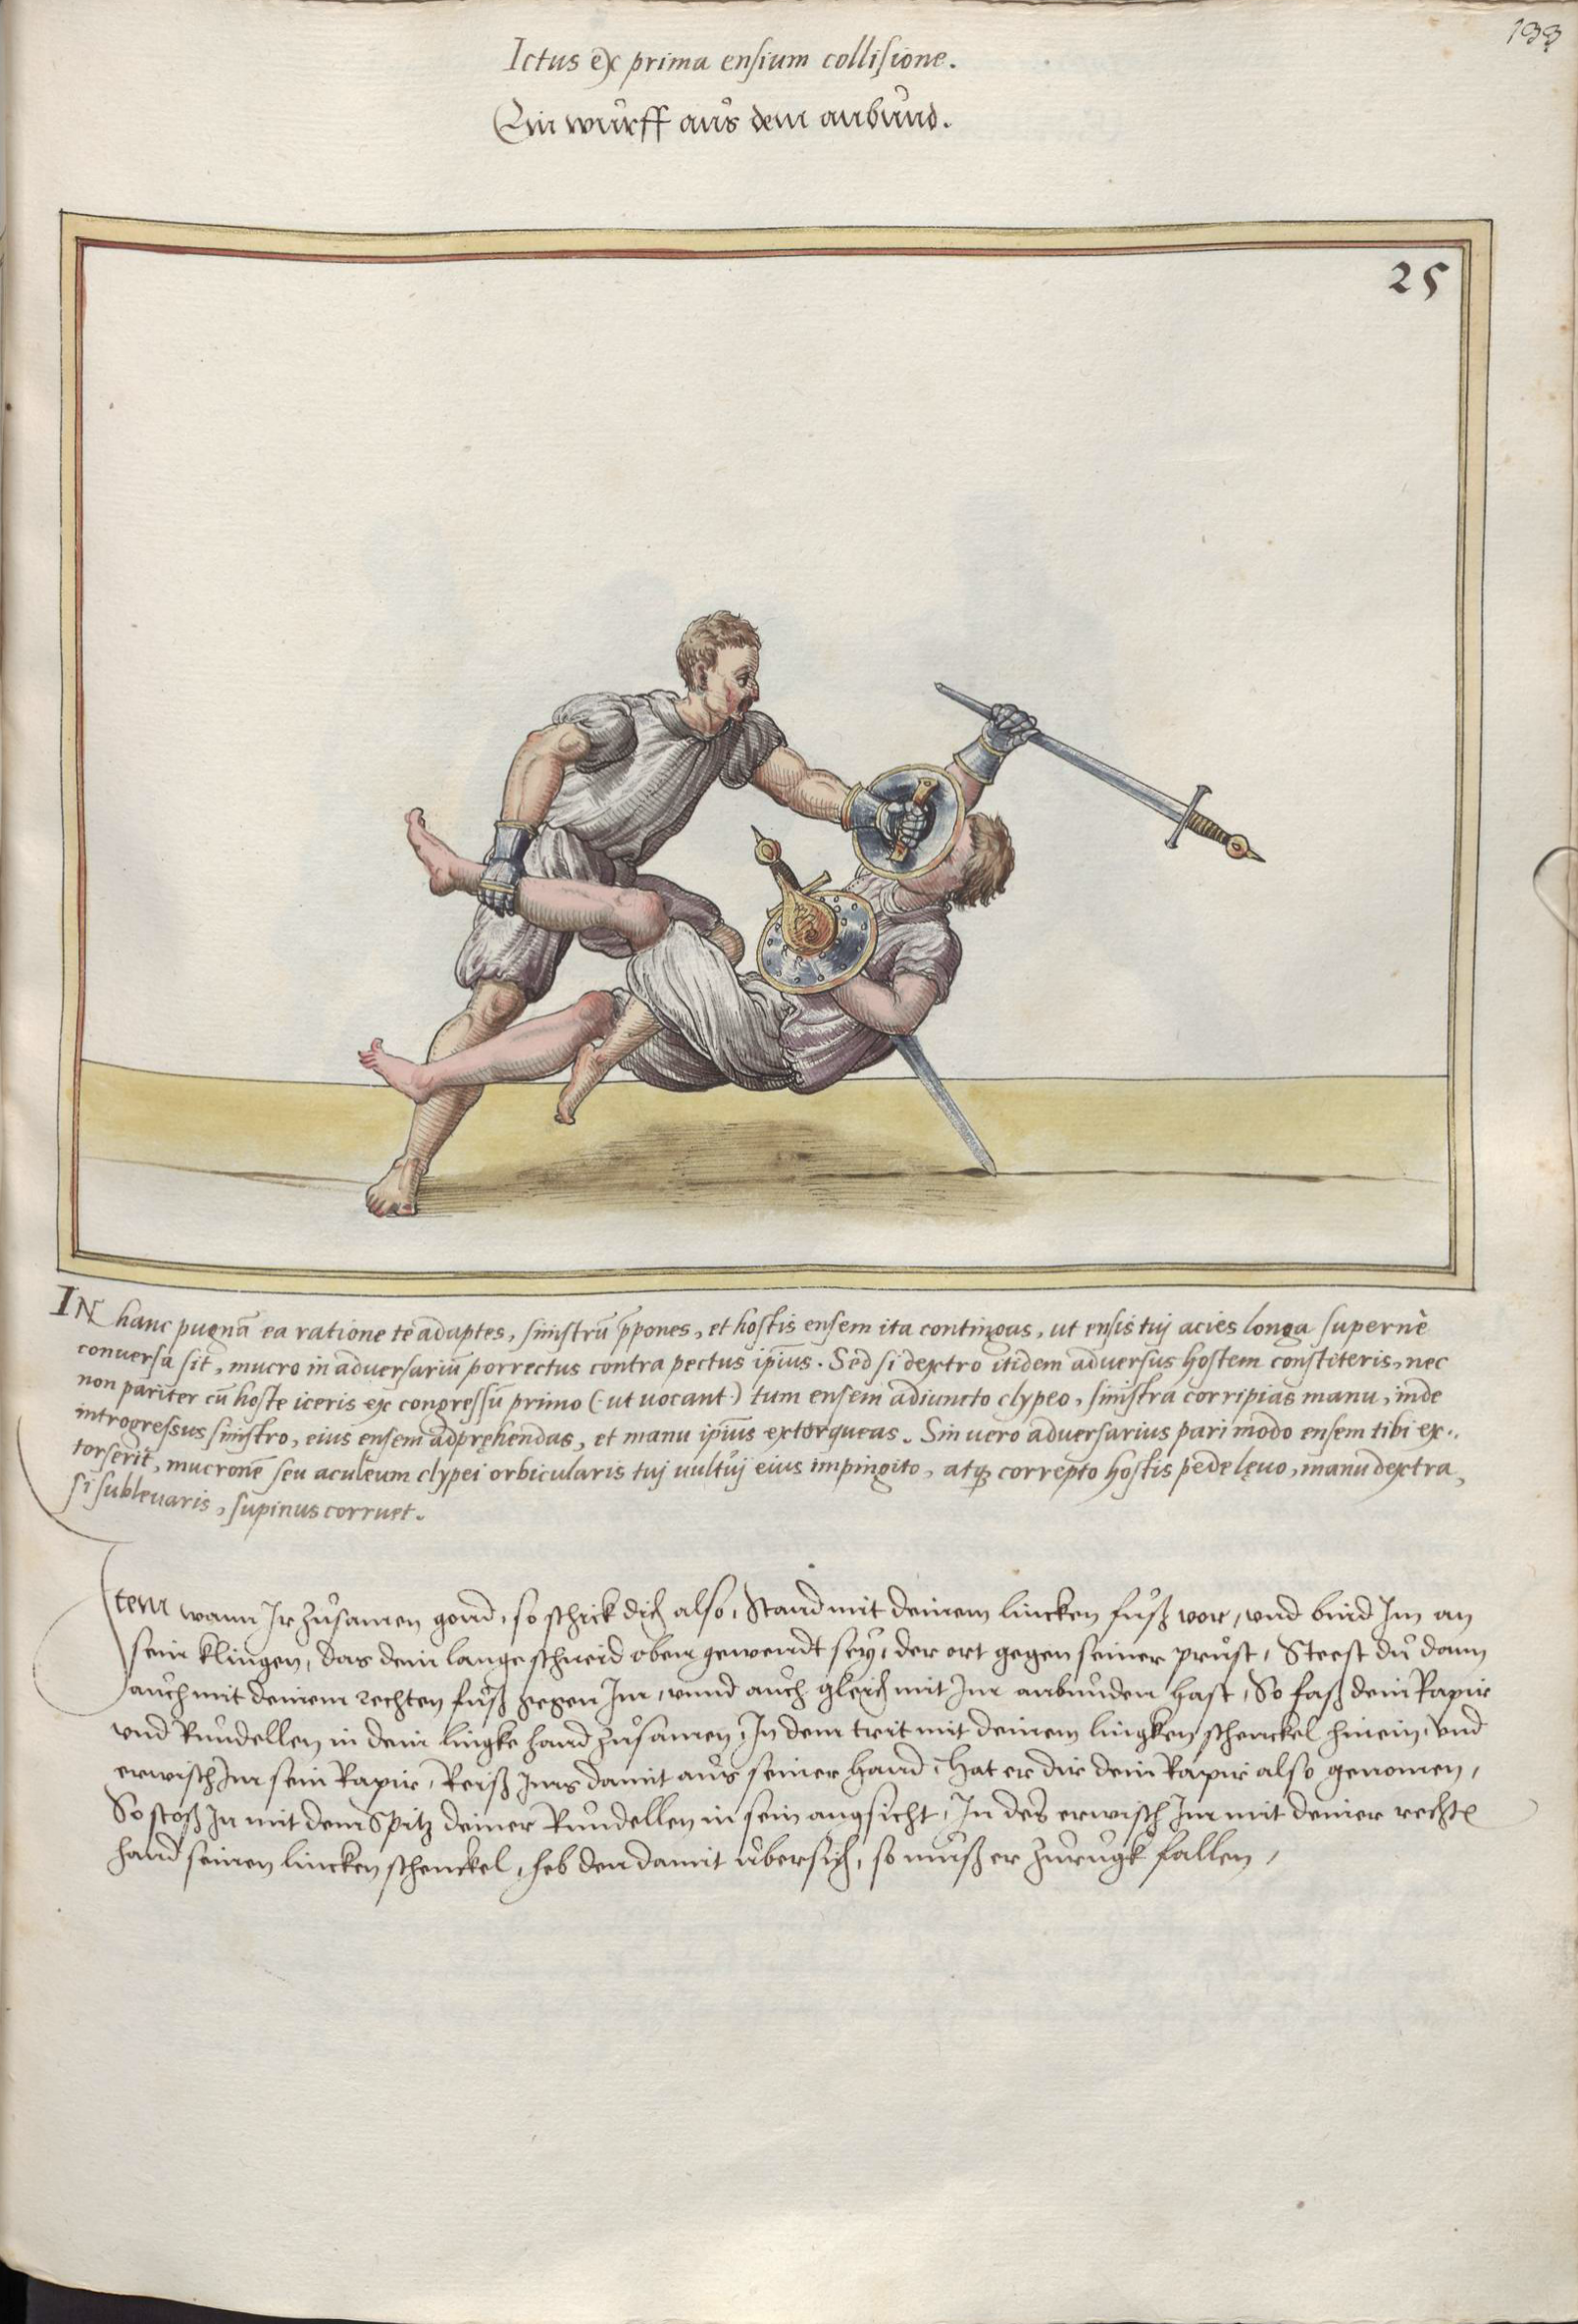 133
Ictus ex prima ensium collisione.
Ein wurff aus dem anbund.
25
IN hanc pugnã ea ratione te adaptes, sinistrũ p̃pones, et hostis ensem ita contingas, ut ensis tuj acies longa supernè
conuersa sit, mucro in aduersariũ porrectus contra pectus ipĩus. Sed si dextro itidem aduersus hostem constiteris, nec
non pariter cũ hoste iceris ex congressũ primo (ut uocant) tum ensem adiuncto clypeo, sinistra corripias manu, inde
introgressus sinistro, eius ensem adpręhendas, et manu ipĩus extorqueas. Sin uero aduersarius pari modo ensem tibi ex-
torserit, mucronẽ seu aculeum clypei orbicularis tuj uultuj eius impingito, atq; correpto hostis pede lęuo, manu dextra,
si subleuaris, supinus corruet.
Item wann Ir zusamen gond, so schick dich also, Stand mit deinem lincken fuß vor, vnd bind Im an
sein klingen, das dein lange schneid oben gewendt sey, der ort gegen seiner prust, Steest du dann
auch mit deinem rechten fuß gegen Im, vnnd auch gleich mit Im anbunden hast, So faß dein Rapir
vnd Rundellen in dein lingke hand zusamen, In dem trit mit deinem lingken schenckel hinein, vnd
erwisch Im sein Rapir, Reiß Ims damit aus seiner hand, Hat er dir dein Rapir also genomen,
So stoß In mit dem Spitz deiner Rundellen in sein angsicht, In des erwisch Im mit deiner rechtē
hand seinen lincken schenckel, heb den damit übersich, so muß er zurugk fallen,